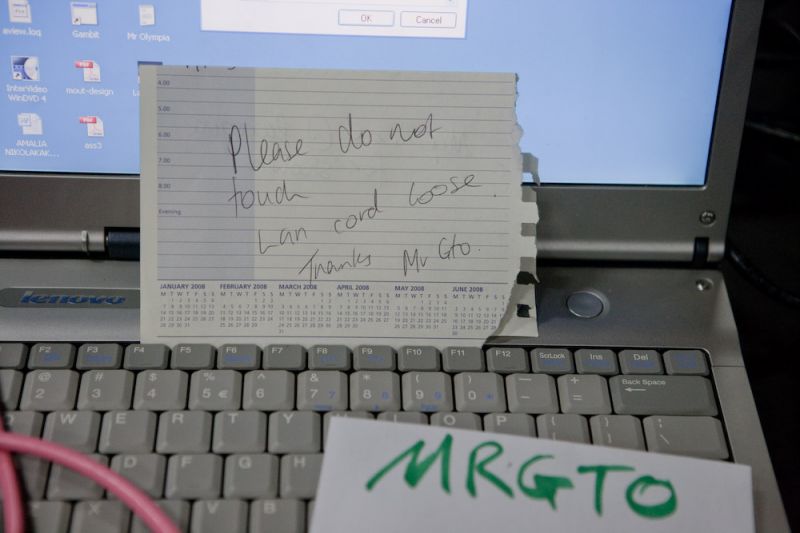 OK Cancel
aview.log Gambit Mr Olympia
InterVideo WinDVD 4 mout-design
AMALIA NIKOLAKAK... ass3
4.00
5.00
6.00
7.00
8.00
Evening
Please do not
touch
Lan cord loose.
Thanks Mr Gto.
JANUARY 2008 FEBRUARY 2008 MARCH 2008 APRIL 2008 MAY 2008 JUNE 2008
lenovo
F2 F3 F4 F5 F6 F7 F8 F9 F10 F11 F12 ScrLock Ins Del
@ 2 # 3 $ 4 % 5 € ^ 6 & 7 * 8 ( 9 ) 0 — - + = Back Space
W E R T Y U I O P
D F G H
V B
MRGTO